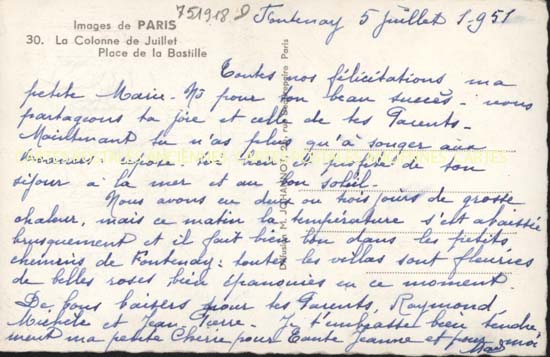 Images de PARIS
30. La Colonne de Juillet
Place de la Bastille
751918
Fontenay 5 juillet 1951
Toutes nos félicitations ma
petite Marie-No pour ton beau succès - nous
partageons ta joie et celle de tes Parents -
Maintenant tu n'as plus qu'à songer aux
vacances repose toi bien et profite de ton
séjour à la mer et au bon soleil -
Nous avons eu deux ou trois jours de grosse
chaleur, mais ce matin la température s'est abaissée
brusquement et il fait bien bon dans les petits
chemins de Fontenay : toutes les villas sont fleuries
de belles roses bien épanouies en ce moment.
De bons baisers pour tes Parents, Raymond
Michèle et Jean-Pierre - Je t'embrasse bien tendre
ment ma petite Cherie pour Tante Jeanne et pour moi
Paris